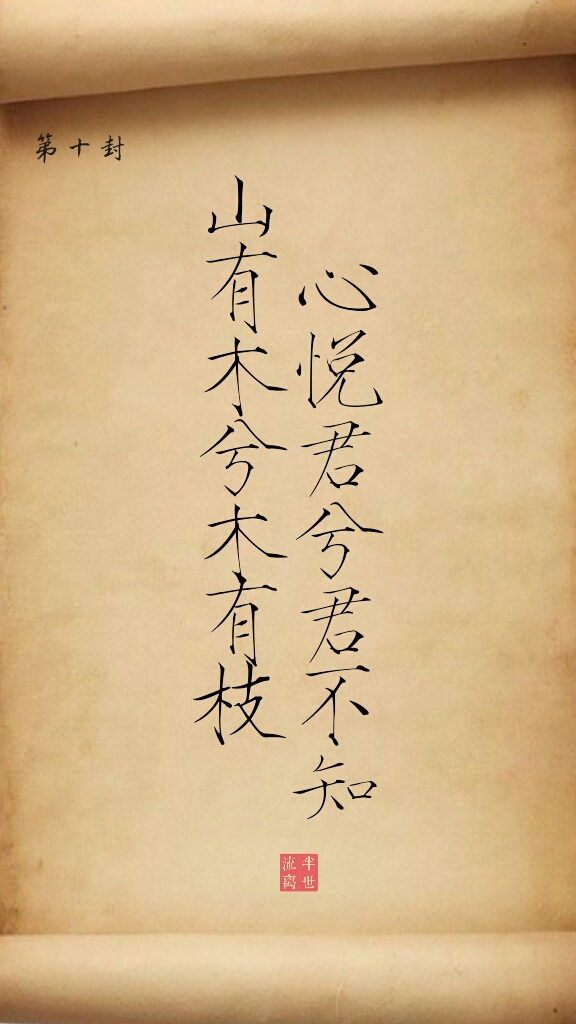 第十封
山有木兮木有枝
心悦君兮君不知
半世
流离